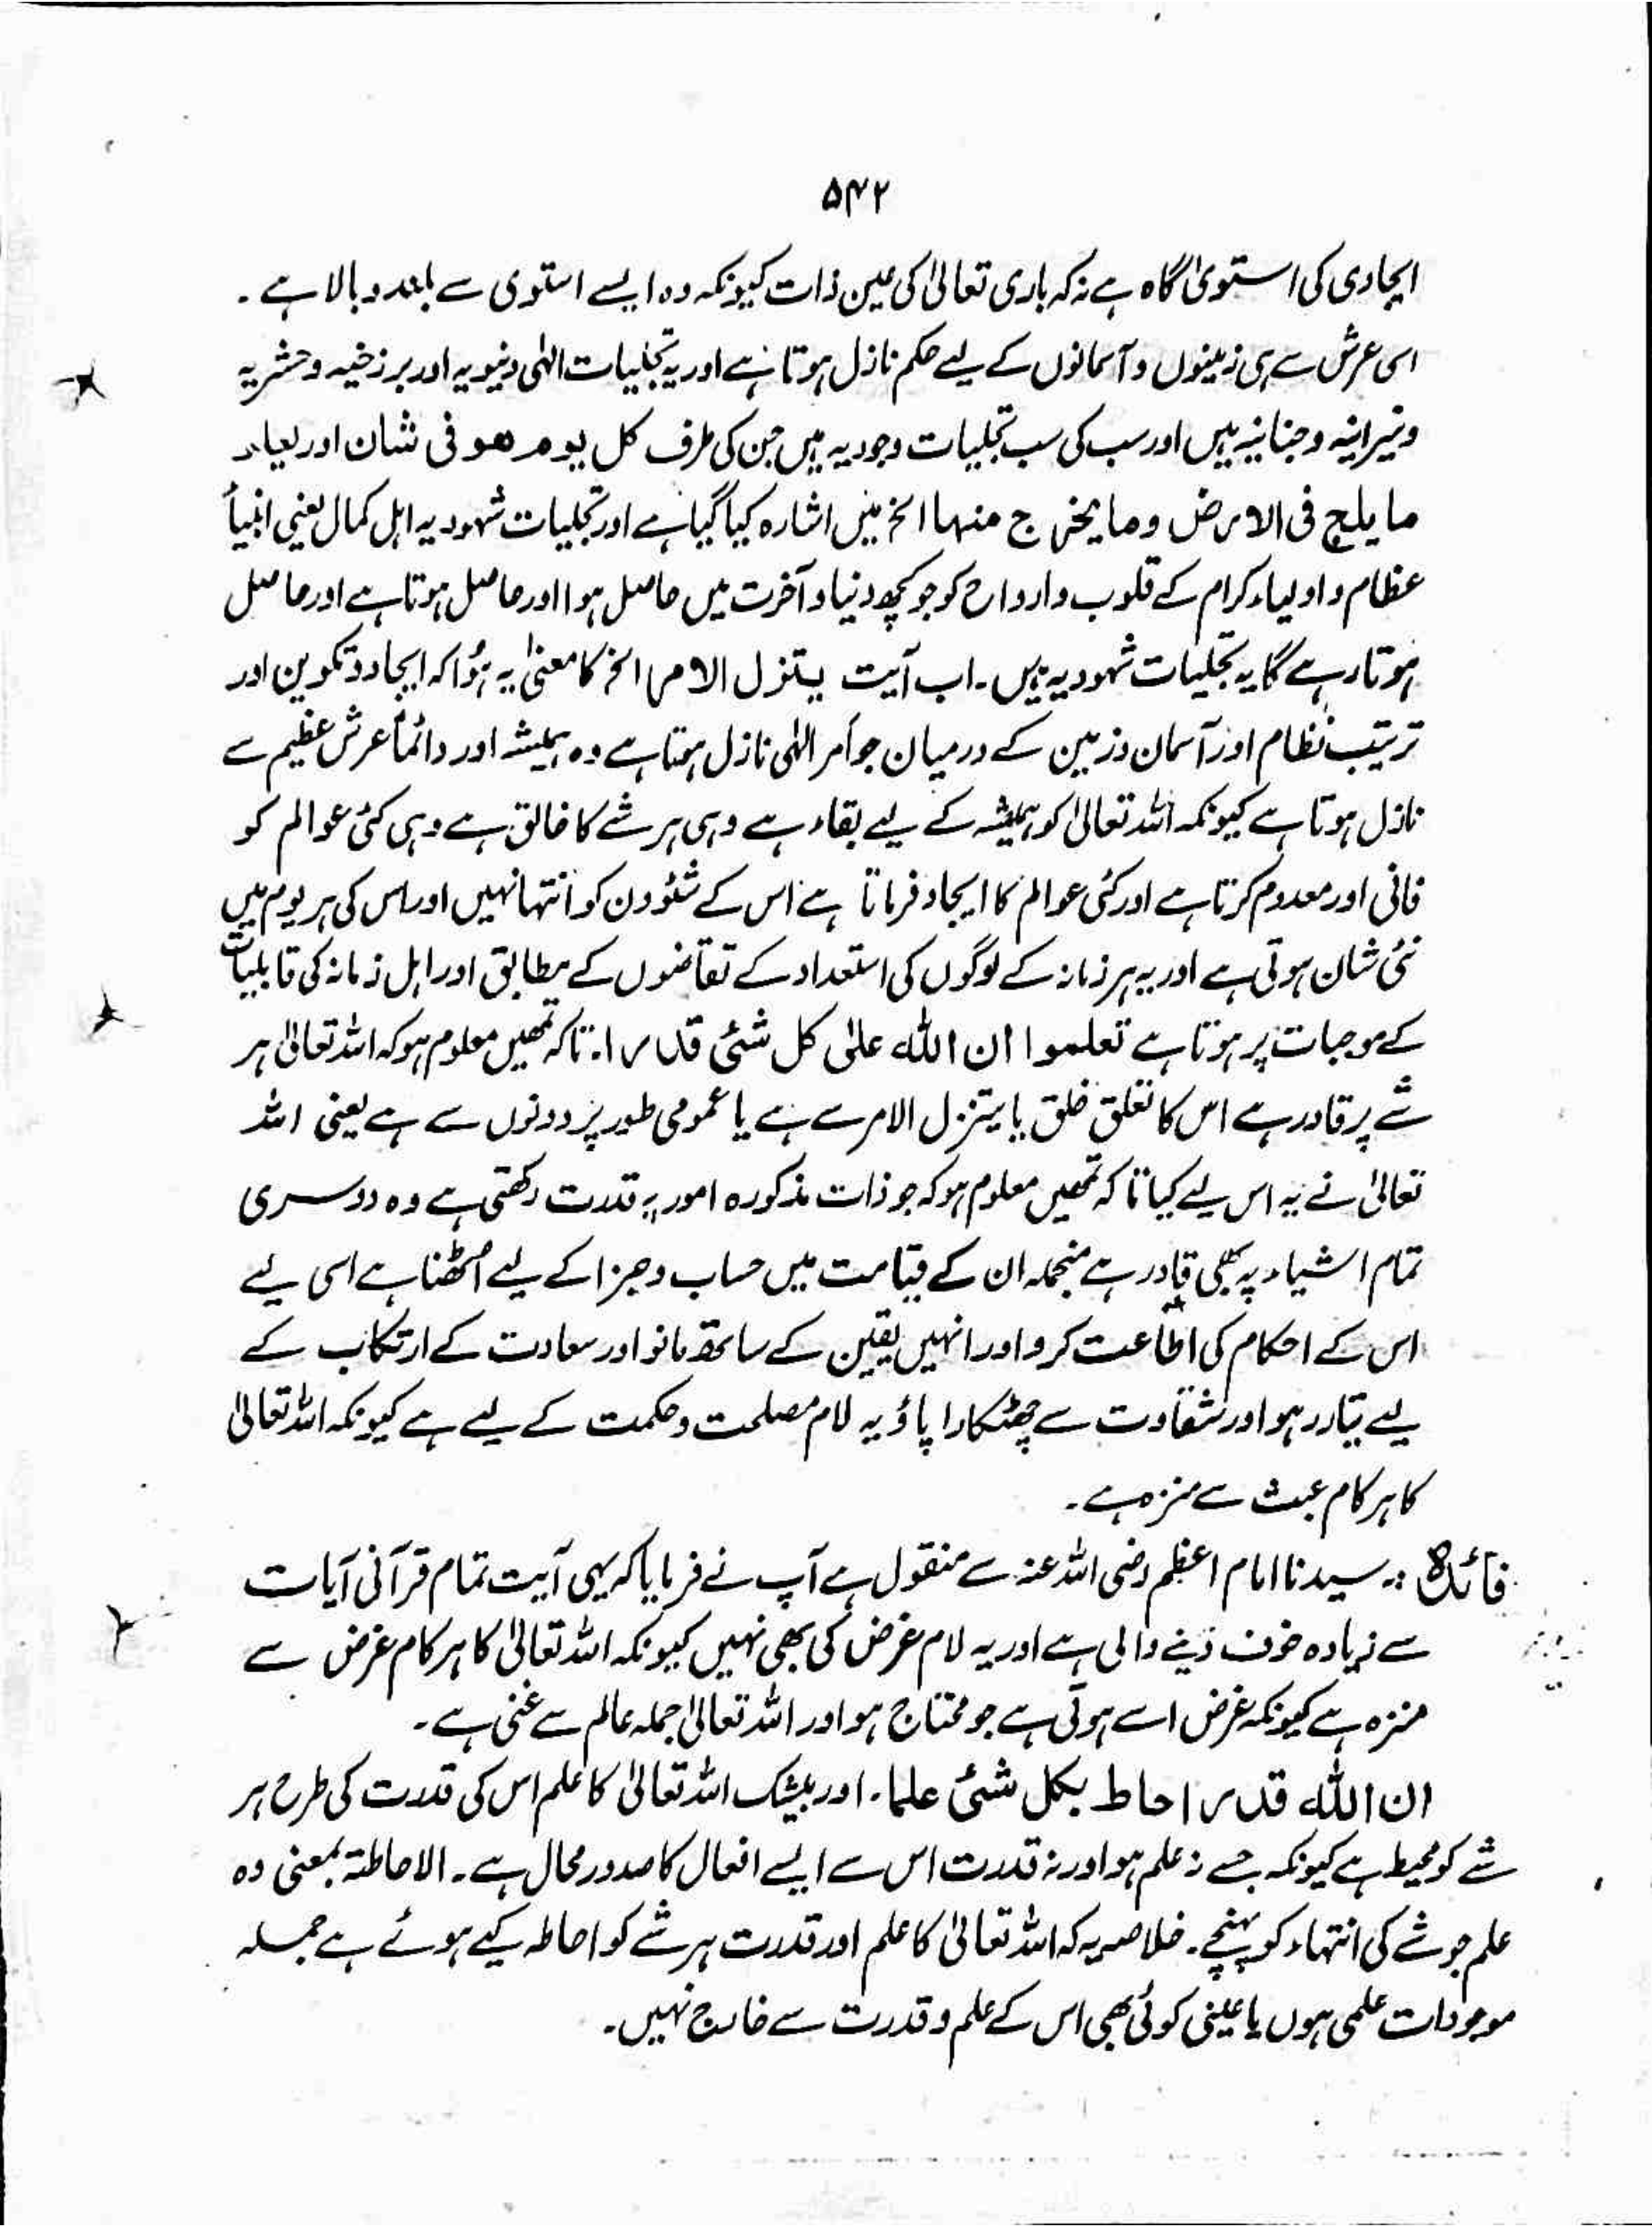 ۵۴۲
ایجادی کی استویٰ گاہ ہے نہ کہ باری تعالیٰ کی عین ذات کیونکہ وہ ایسے استوی سے بلند و بالا ہے ۔
اسی عرش سے ہی زمینوں و آسمانوں کے لیے حکم نازل ہوتا ہے اور یہ تجلیات الٰہی دنیویہ اور برزخیہ و حشریہ
و نیرانیہ و جنانیہ ہیں اور سب کی سب تجلیات وجودیہ ہیں جن کی طرف کل یوم ھو فی شان اور یعلم
ما یلج فی الارض وما یخرج منھا الخ میں اشارہ کیا گیا ہے اور تجلیات شہودیہ اہل کمال یعنی انبیاٗ
عظام و اولیاء کرام کے قلوب و ارواح کو جو کچھ دنیا و آخرت میں حاصل ہوا اور حاصل ہوتا ہے اور حاصل
ہوتا رہے گا یہ تجلیات شہودیہ ہیں ۔ اب آیت یتنزل الامر الخ کا معنیٰ یہ ہُوا کہ ایجاد و تکوین اور
ترتیب نظام اور آسمان و زمین کے درمیان جو اَمر الٰہی نازل ہوتا ہے وہ ہمیشہ اور دائماً عرش عظیم سے
نازل ہوتا ہے کیونکہ اللہ تعالیٰ کو ہمیشہ کے لیے بقاء ہے وہی ہر شے کا خالق ہے وہی کئی عوالم کو
فانی اور معدوم کرتا ہے اور کئی عوالم کا ایجاد فرماتا ہے اس کے شئودن کو انتہا نہیں اور اس کی ہر یوم میں
نئی شان ہوتی ہے اور یہ ہر زمانہ کے لوگوں کی استعداد کے تقاضوں کے مطابق اور اہل زمانہ کی قابلیات
کے موجبات پر ہوتا ہے تعلموا ان اللہ علیٰ کل شئ قدیرا ۔ تاکہ تمھیں معلوم ہو کہ اللہ تعالیٰ ہر
شے پر قادر ہے اس کا تعلق خلق یا یتنزل الامر سے ہے یا عمومی طور پر دونوں سے ہے یعنی اللہ
تعالیٰ نے یہ اس لیے کیا تاکہ تمھیں معلوم ہو کہ جو ذات مذکورہ امور پہ قدرت رکھتی ہے وہ دوسری
تمام اشیاء پہ بھی قادر ہے منجملہ ان کے قیامت میں حساب و جزا کے لیے اٹھنا ہے اسی لیے
اس کے احکام کی اطاعت کرو اور انہیں یقین کے ساتھ مانو اور سعادت کے ارتکاب کے
لیے تیار رہو اور شقاوت سے چھٹکارا پاؤ یہ لام مصلحت و حکمت کے لیے ہے کیونکہ اللہ تعالیٰ
کا ہر کام عبث سے منزہ ہے ۔
فائدہ :۔ سیدنا امام اعظم رضی اللہ عنہ سے منقول ہے آپ نے فرمایا کہ یہی آیت تمام قرآنی آیات
سے زیادہ خوف دینے والی ہے اور یہ لام غرض کی بھی نہیں کیونکہ اللہ تعالیٰ کا ہر کام غرض سے
منزہ ہے کیونکہ غرض اسے ہوتی ہے جو محتاج ہو اور اللہ تعالیٰ جملہ عالم سے غنی ہے ۔
ان اللہ قد احاط بکل شئ علما ۔ اور بیشک اللہ تعالیٰ کا علم اس کی قدرت کی طرح ہر
شے کو محیط ہے کیونکہ جسے نہ علم ہو اور نہ قدرت اس سے ایسے افعال کا صدور محال ہے ۔ الاحاطۃ بمعنی وہ
علم جو شے کی انتہاء کو پہنچے ۔ خلاصہ یہ کہ اللہ تعالیٰ کا علم اور قدرت ہر شے کو احاطہ کیے ہوئے ہے جملہ
موجودات علمی ہوں یا عینی کوئی بھی اس کے علم و قدرت سے خارج نہیں ۔